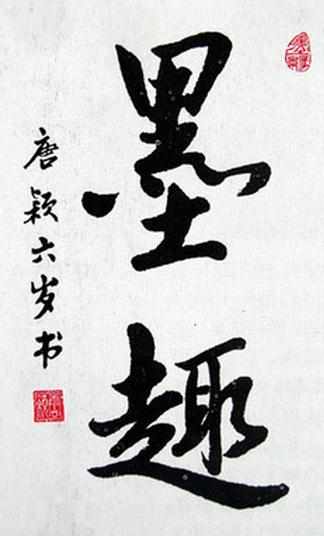 墨趣
唐颖六岁书